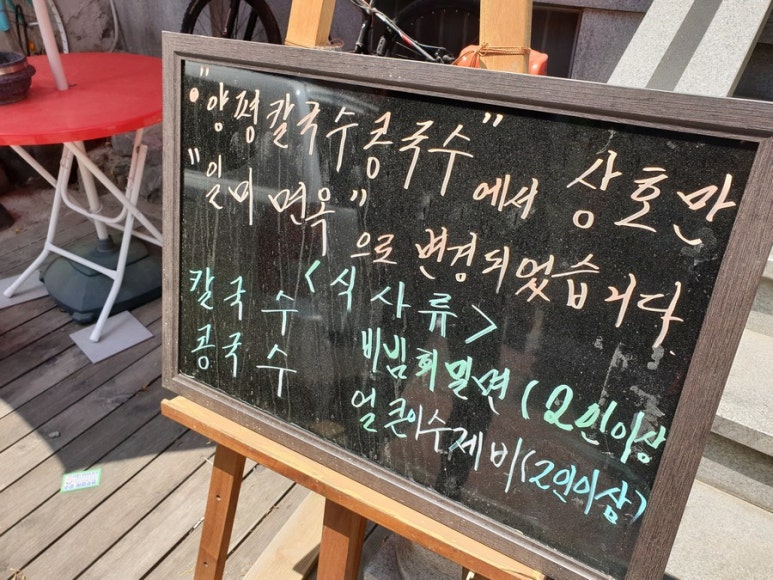 "양평칼국수콩국수"에서 상호만
"일미 면옥"으로 변경되었습니다.
<식 사 류>
칼 국 수
콩 국 수
비빔회밀면(2인이상
얼큰이수제비(2인이상)